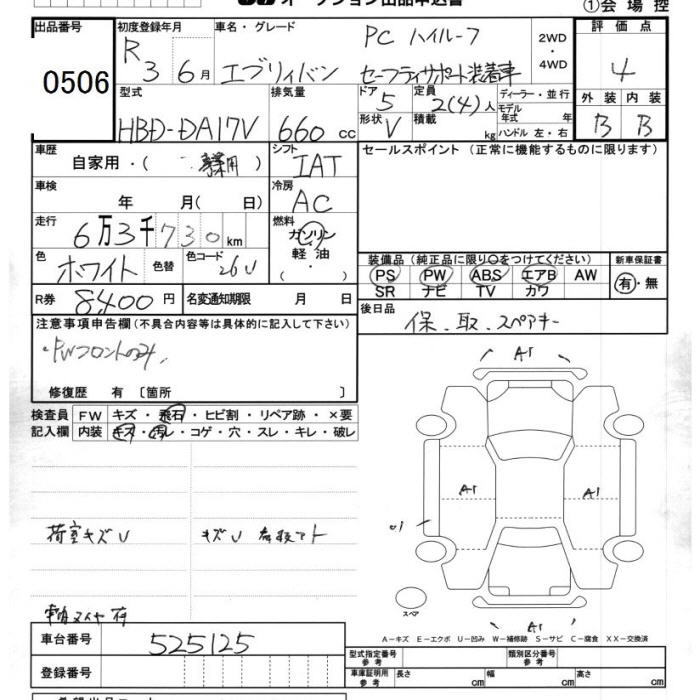 オークション出品申込書
①会場控
出品番号
0506
初度登録年月
R3 6月
車名・グレード
エブリィバン
PC ハイルーフ
セーフティサポート装着車
2WD・4WD
評価点
4
外装 内装
B B
型式
HBD-DA17V
排気量
660 cc
ドア
5
定員
2(4)人
ディーラー・並行
モデル年式 年
形状
V
積載 kg
ハンドル 左・右
車歴
自家用・( 事業用 )
シフト
IAT
セールスポイント(正常に機能するものに限ります)
車検
年 月( 日)
冷房
AC
走行
6万3千730km
燃料
ガソリン
軽油
( ・ )
色
ホワイト
色替
色コード
26U
装備品(純正品に限り○をつけてください)
PS PW ABS エアB AW
SR ナビ TV カワ
新車保証書
有・無
R券
8,400円
名変通知期限 月 日
後日品
保、取、スペアキー
注意事項申告欄(不具合内容等は具体的に記入して下さい)
・PWフロントのみ
修復歴 有 〔箇所 〕
検査員記入欄
FW キズ・飛石・ヒビ割・リペア跡・×要
内装 キズ・汚レ・コゲ・穴・スレ・キレ・破レ
A1
A1
A1
A1
荷室キズU
キズU
スペア
A-キズ E-エクボ U-凹み W-補修跡 S-サビ C-腐食 XX-交換済
車台番号
525125
登録番号
型式指定番号 参考
類別区分番号 参考
車庫証明用 参考
長さ cm
幅 cm
高さ cm